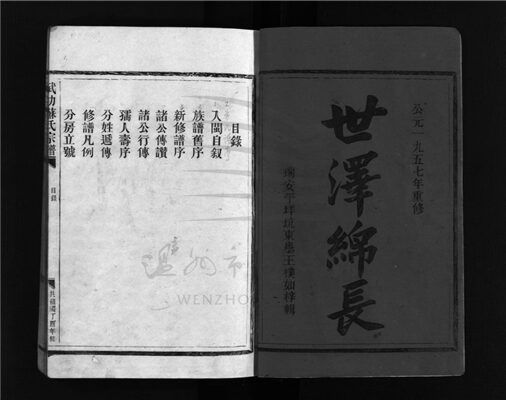 公元一九五七年重修
世澤綿長
瑞安平坑境東學王樸如梓輯
目錄
入閩自敘
族譜舊序
新修譜序
諸公傳讚
諸公行傳
孺人壽序
分姓遞傳
修譜凡例
分房立號
武功蘇氏宗譜
目錄
溫州市
WENZHO